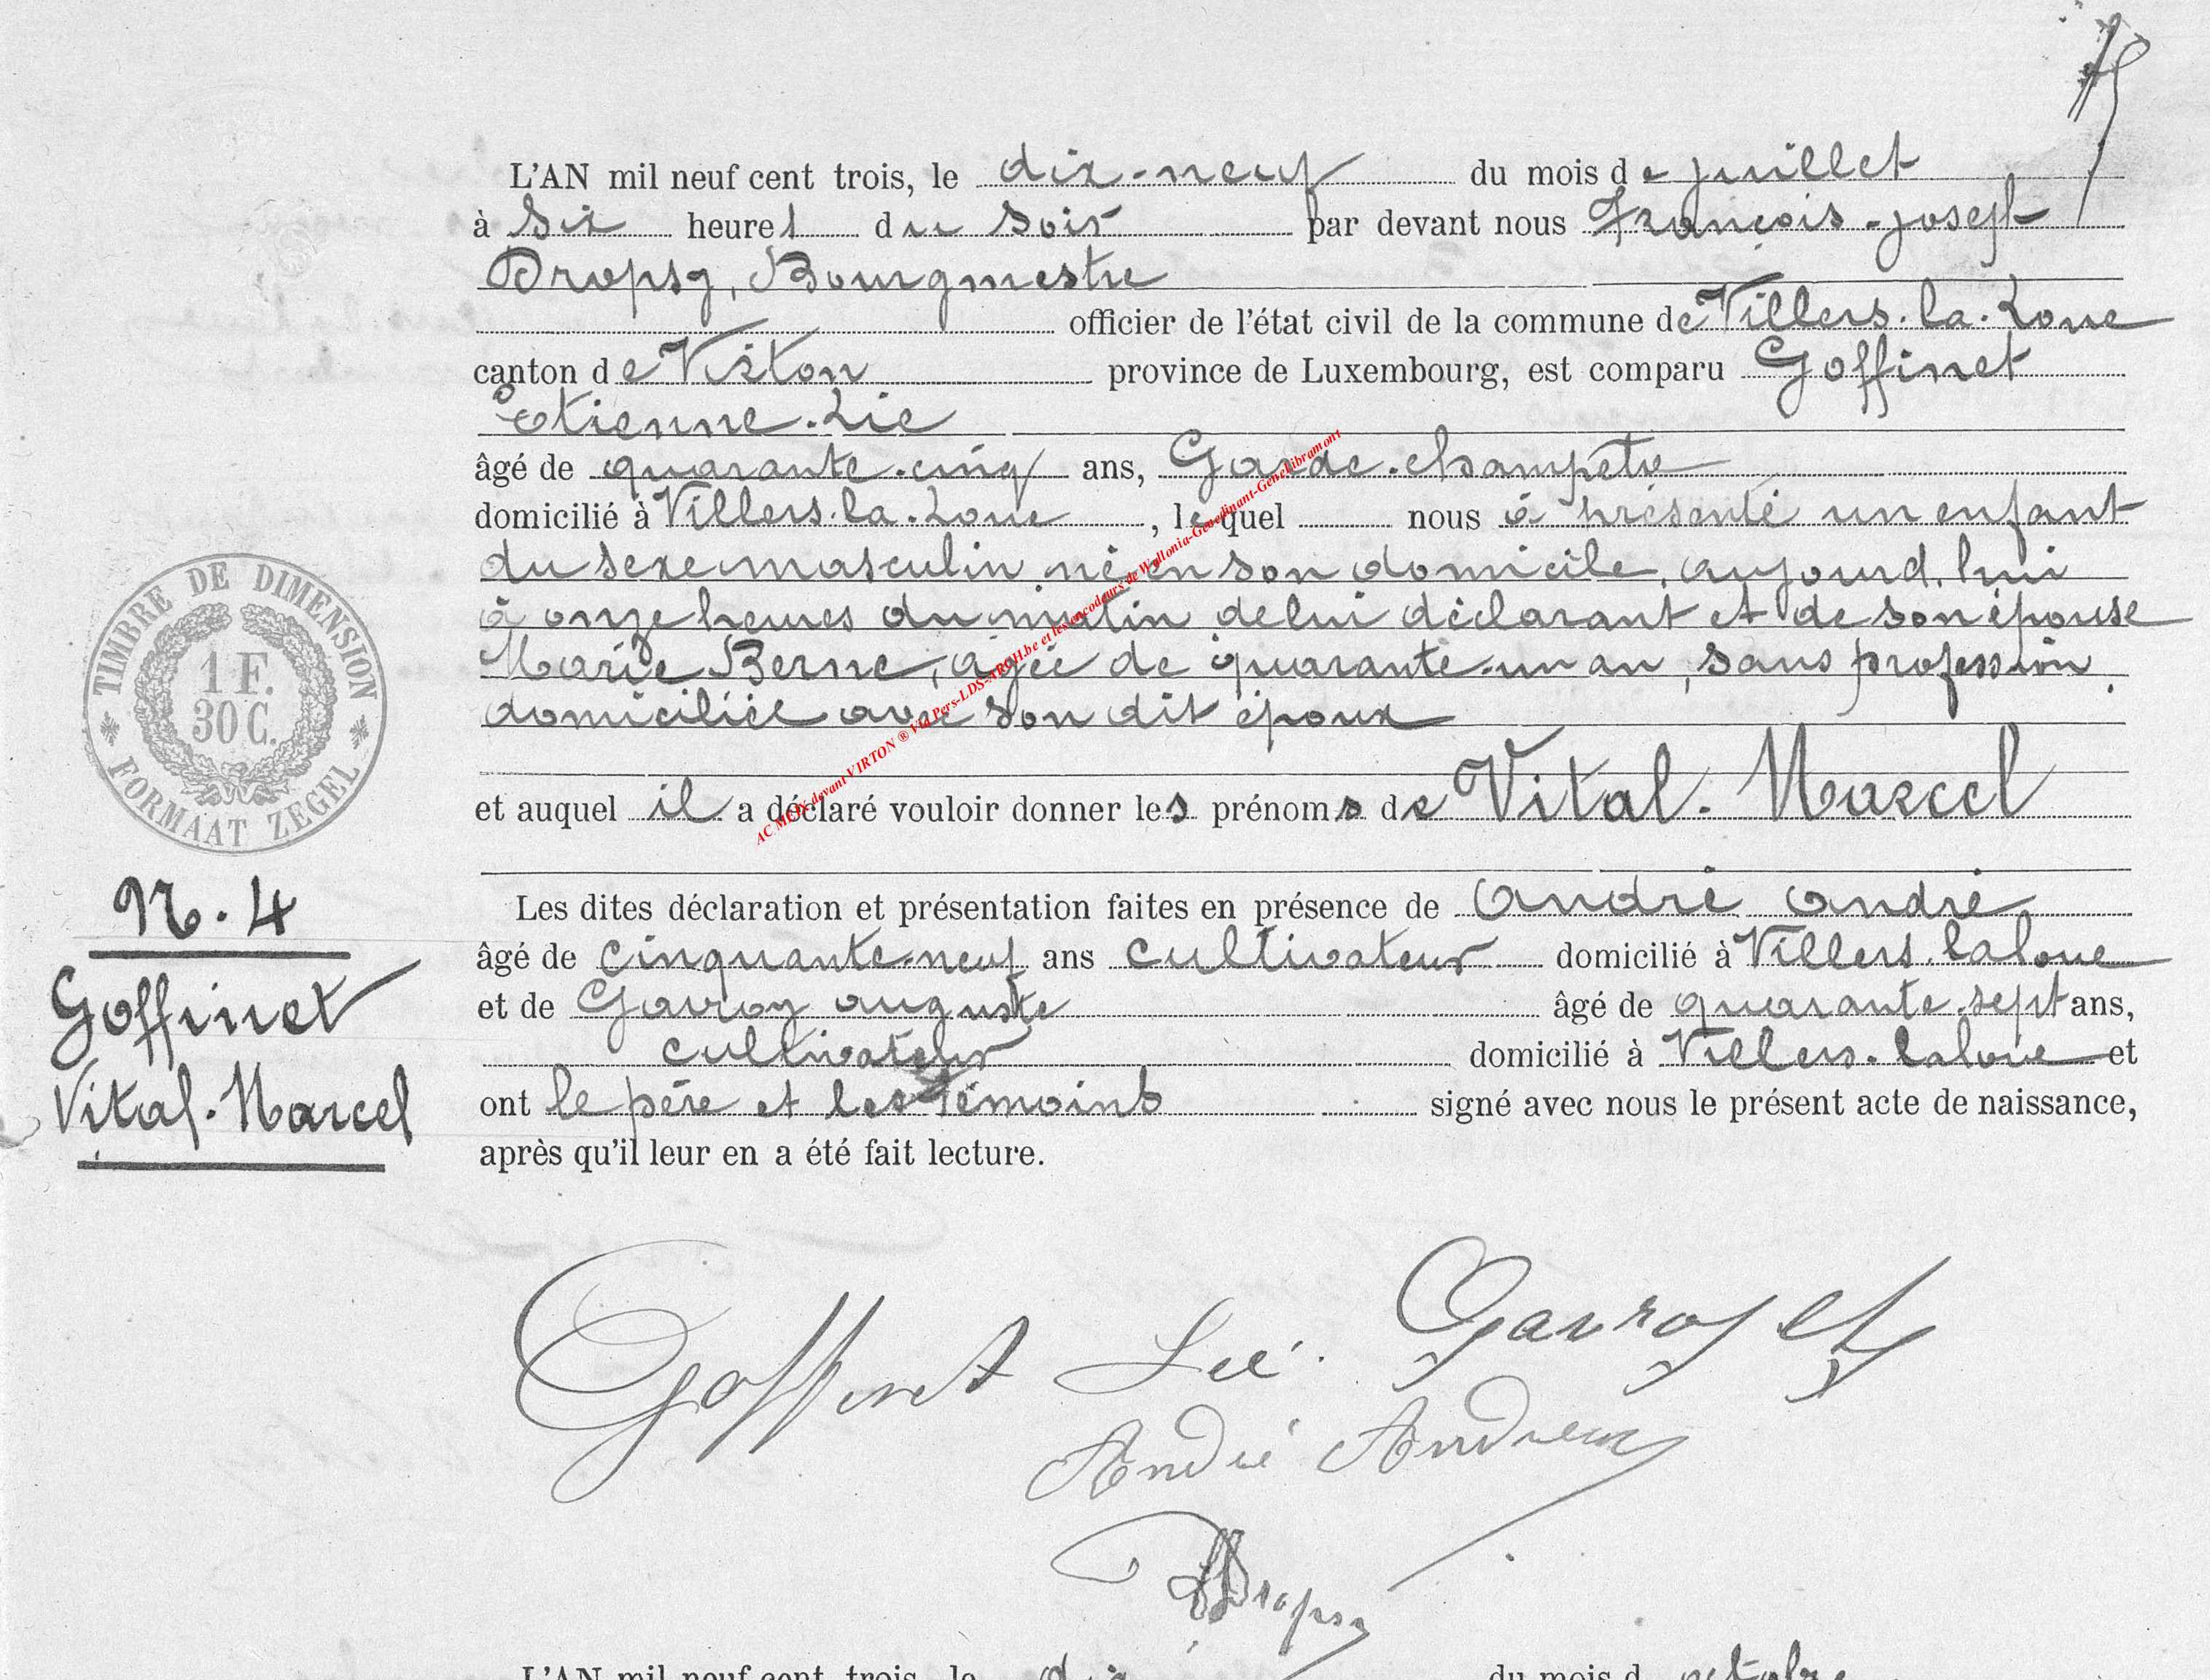 L'AN mil neuf cent trois, le dix-neuf du mois de juillet
à six heures du soir par devant nous François-joseph
Dropsy, Bourgmestre
officier de l'état civil de la commune de Villers-la-Loue
canton de Virton province de Luxembourg, est comparu Goffinet
Etienne-Lié
âgé de quarante-cinq ans, Garde-champêtre
domicilié à Villers-la-Loue, lequel nous a présenté un enfant
du sexe masculin né en son domicile, aujourd'hui
à onze heures du matin de lui déclarant et de son épouse
Marie Berne, agée de quarante-un an, sans profession,
domiciliée avec son dit époux
et auquel il a déclaré vouloir donner les prénoms de Vital-Marcel
Les dites déclaration et présentation faites en présence de André André
âgé de cinquante-neuf ans cultivateur domicilié à Villers-laloue
et de Gavroy auguste âgé de quarante-sept ans,
cultivateur domicilié à Villers-laloue et
ont le père et les témoins signé avec nous le présent acte de naissance,
après qu'il leur en a été fait lecture.
TIMBRE DE DIMENSION
1 F.
30 C.
FORMAAT ZEGEL
N. 4
Goffinet
Vital-Marcel
AC MEIX-devant-VIRTON ® Via Pers-LDS-ARCH.be et les encodeurs de Wallonia-Genedinant-GeneLibramont
Goffinet Lié. Gavroy
André Andreux
Dropsy
L'AN mil neuf cent trois, le dix du mois d octobre